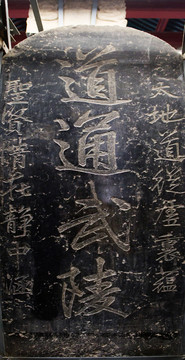 天地道從虛裏蘊
道通武陵
聖賢情在靜中涵